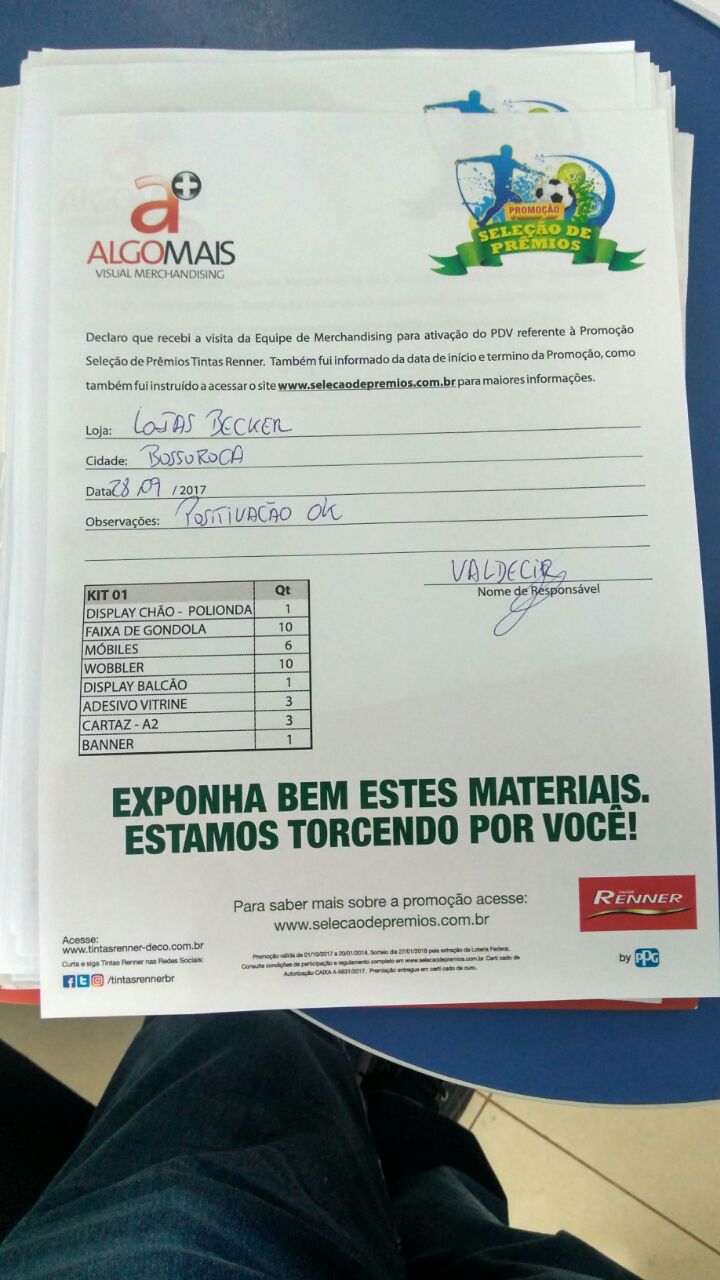 a+
ALGOMAIS
VISUAL MERCHANDISING
PROMOÇÃO
SELEÇÃO DE
PRÊMIOS
Declaro que recebi a visita da Equipe de Merchandising para ativação do PDV referente à Promoção
Seleção de Prêmios Tintas Renner. Também fui informado da data de início e termino da Promoção, como
também fui instruído a acessar o site www.selecaodepremios.com.br para maiores informações.
Loja: LOJAS BECKER
Cidade: BOSSOROCA
Data 28/09 / 2017
Observações: POSITIVAÇÃO OK
VALDECIR
Nome de Responsável
KIT 01 Qt
DISPLAY CHÃO - POLIONDA 1
FAIXA DE GONDOLA 10
MÓBILES 6
WOBBLER 10
DISPLAY BALCÃO 1
ADESIVO VITRINE 3
CARTAZ - A2 3
BANNER 1
EXPONHA BEM ESTES MATERIAIS.
ESTAMOS TORCENDO POR VOCÊ!
Para saber mais sobre a promoção acesse:
www.selecaodepremios.com.br
TINTAS
RENNER
by PPG
Acesse:
www.tintasrenner-deco.com.br
Curta e siga Tintas Renner nas Redes Sociais:
/tintasrennerbr
Promoção válida de 01/10/2017 a 20/01/2018. Sorteio dia 27/01/2018 pela extração da Loteria Federal.
Consulte condições de participação e regulamento completo em www.selecaodepremios.com.br. Certi cado de
Autorização CAIXA 4-5631/2017. Premiação entregue em certi cado de ouro.